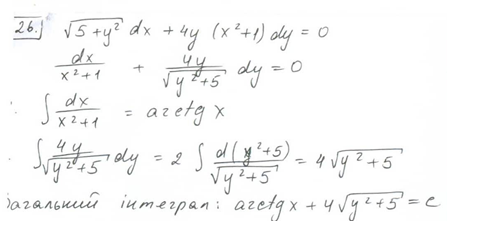 26.) √(5+y²) dx + 4y (x²+1) dy = 0
dx/(x²+1) + 4y/√(y²+5) dy = 0
∫ dx/(x²+1) = arctg x
∫ 4y/√(y²+5) dy = 2 ∫ d(y²+5)/√(y²+5) = 4√(y²+5)
Загальний інтеграл: arctg x + 4√(y²+5) = c